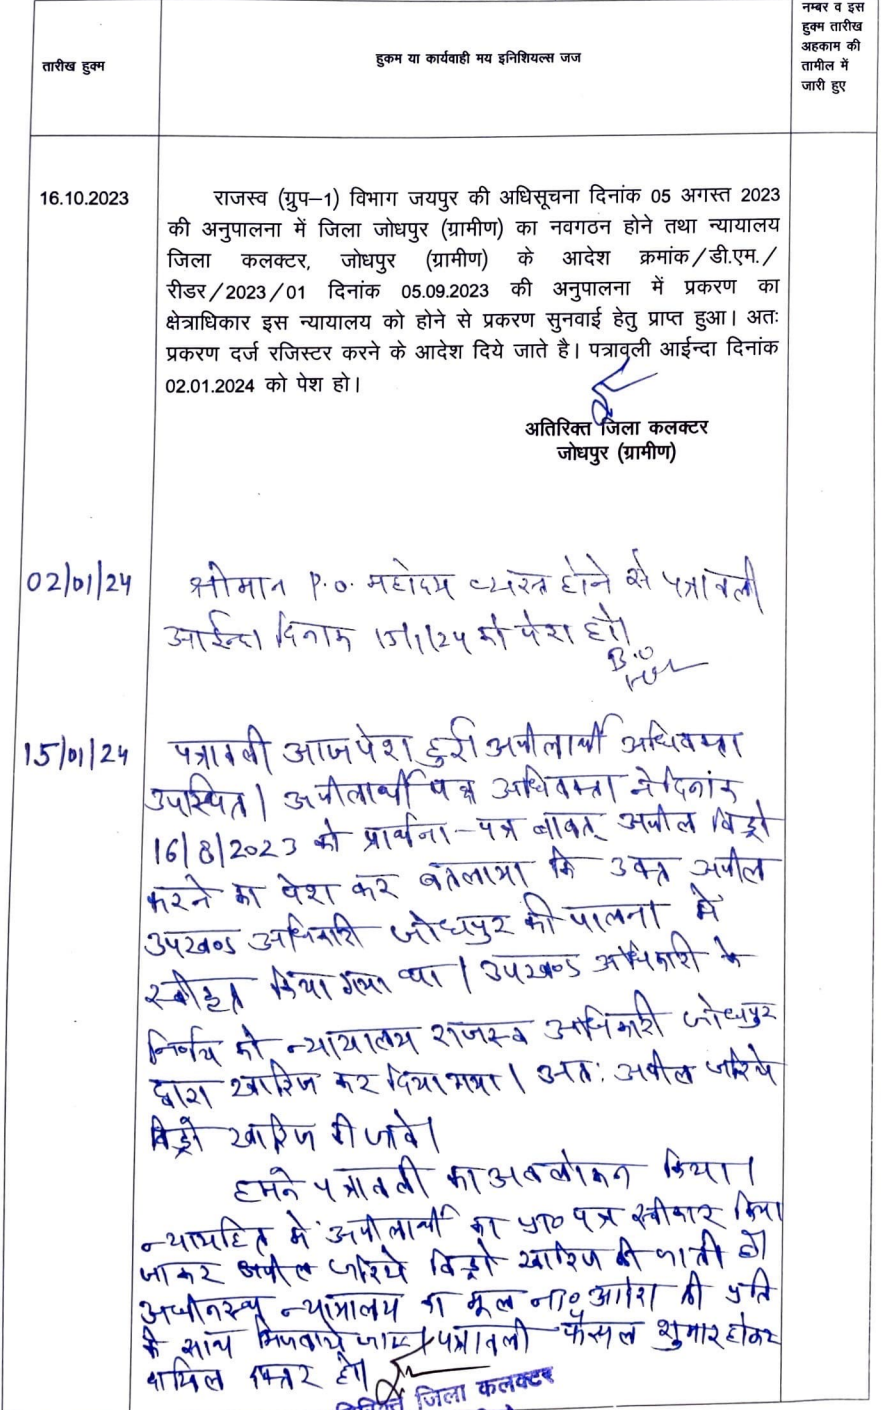 नम्बर व इस
हुक्म तारीख
अहकाम की
तामील में
जारी हुए
तारीख हुक्म
हुकम या कार्यवाही मय इनिशियल्स जज
16.10.2023
राजस्व (ग्रुप–1) विभाग जयपुर की अधिसूचना दिनांक 05 अगस्त 2023
की अनुपालना में जिला जोधपुर (ग्रामीण) का नवगठन होने तथा न्यायालय
जिला कलक्टर, जोधपुर (ग्रामीण) के आदेश क्रमांक/डी.एम./
रीडर/2023/01 दिनांक 05.09.2023 की अनुपालना में प्रकरण का
क्षेत्राधिकार इस न्यायालय को होने से प्रकरण सुनवाई हेतु प्राप्त हुआ। अतः
प्रकरण दर्ज रजिस्टर करने के आदेश दिये जाते है। पत्रावली आईन्दा दिनांक
02.01.2024 को पेश हो।
अतिरिक्त जिला कलक्टर
जोधपुर (ग्रामीण)
02/01/24
श्रीमान P.O. महोदय व्यस्त होने से पत्रावली
आईन्दा दिनांक 15/1/24 को पेश हो।
B.O
15/01/24
पत्रावली आज पेश हुई अपीलार्थी अधिवक्ता
उपस्थित। अपीलार्थी पक्ष अधिवक्ता ने दिनांक
16/8/2023 को प्रार्थना-पत्र बाबत् अपील विड्रो
करने का पेश कर बतलाया कि उक्त अपील
उपखण्ड अधिकारी जोधपुर की पालना में
स्वीकृत किया गया था। उपखण्ड अधिकारी के
निर्णय को न्यायालय राजस्व अधिकारी जोधपुर
द्वारा खारिज कर दिया गया। अतः अपील जरिये
विड्रो खारिज की जावे।
हमने पत्रावली का अवलोकन किया।
न्यायहित में अपीलार्थी का प्रा० पत्र स्वीकार किया
जाकर अपील जरिये विड्रो खारिज की जाती है।
अधीनस्थ न्यायालय का मूल की प्रति
के साथ भिजवाये जाए। पत्रावली फैसल शुमार होकर
दाखिल दफ्तर हो।
जिला कलक्टर